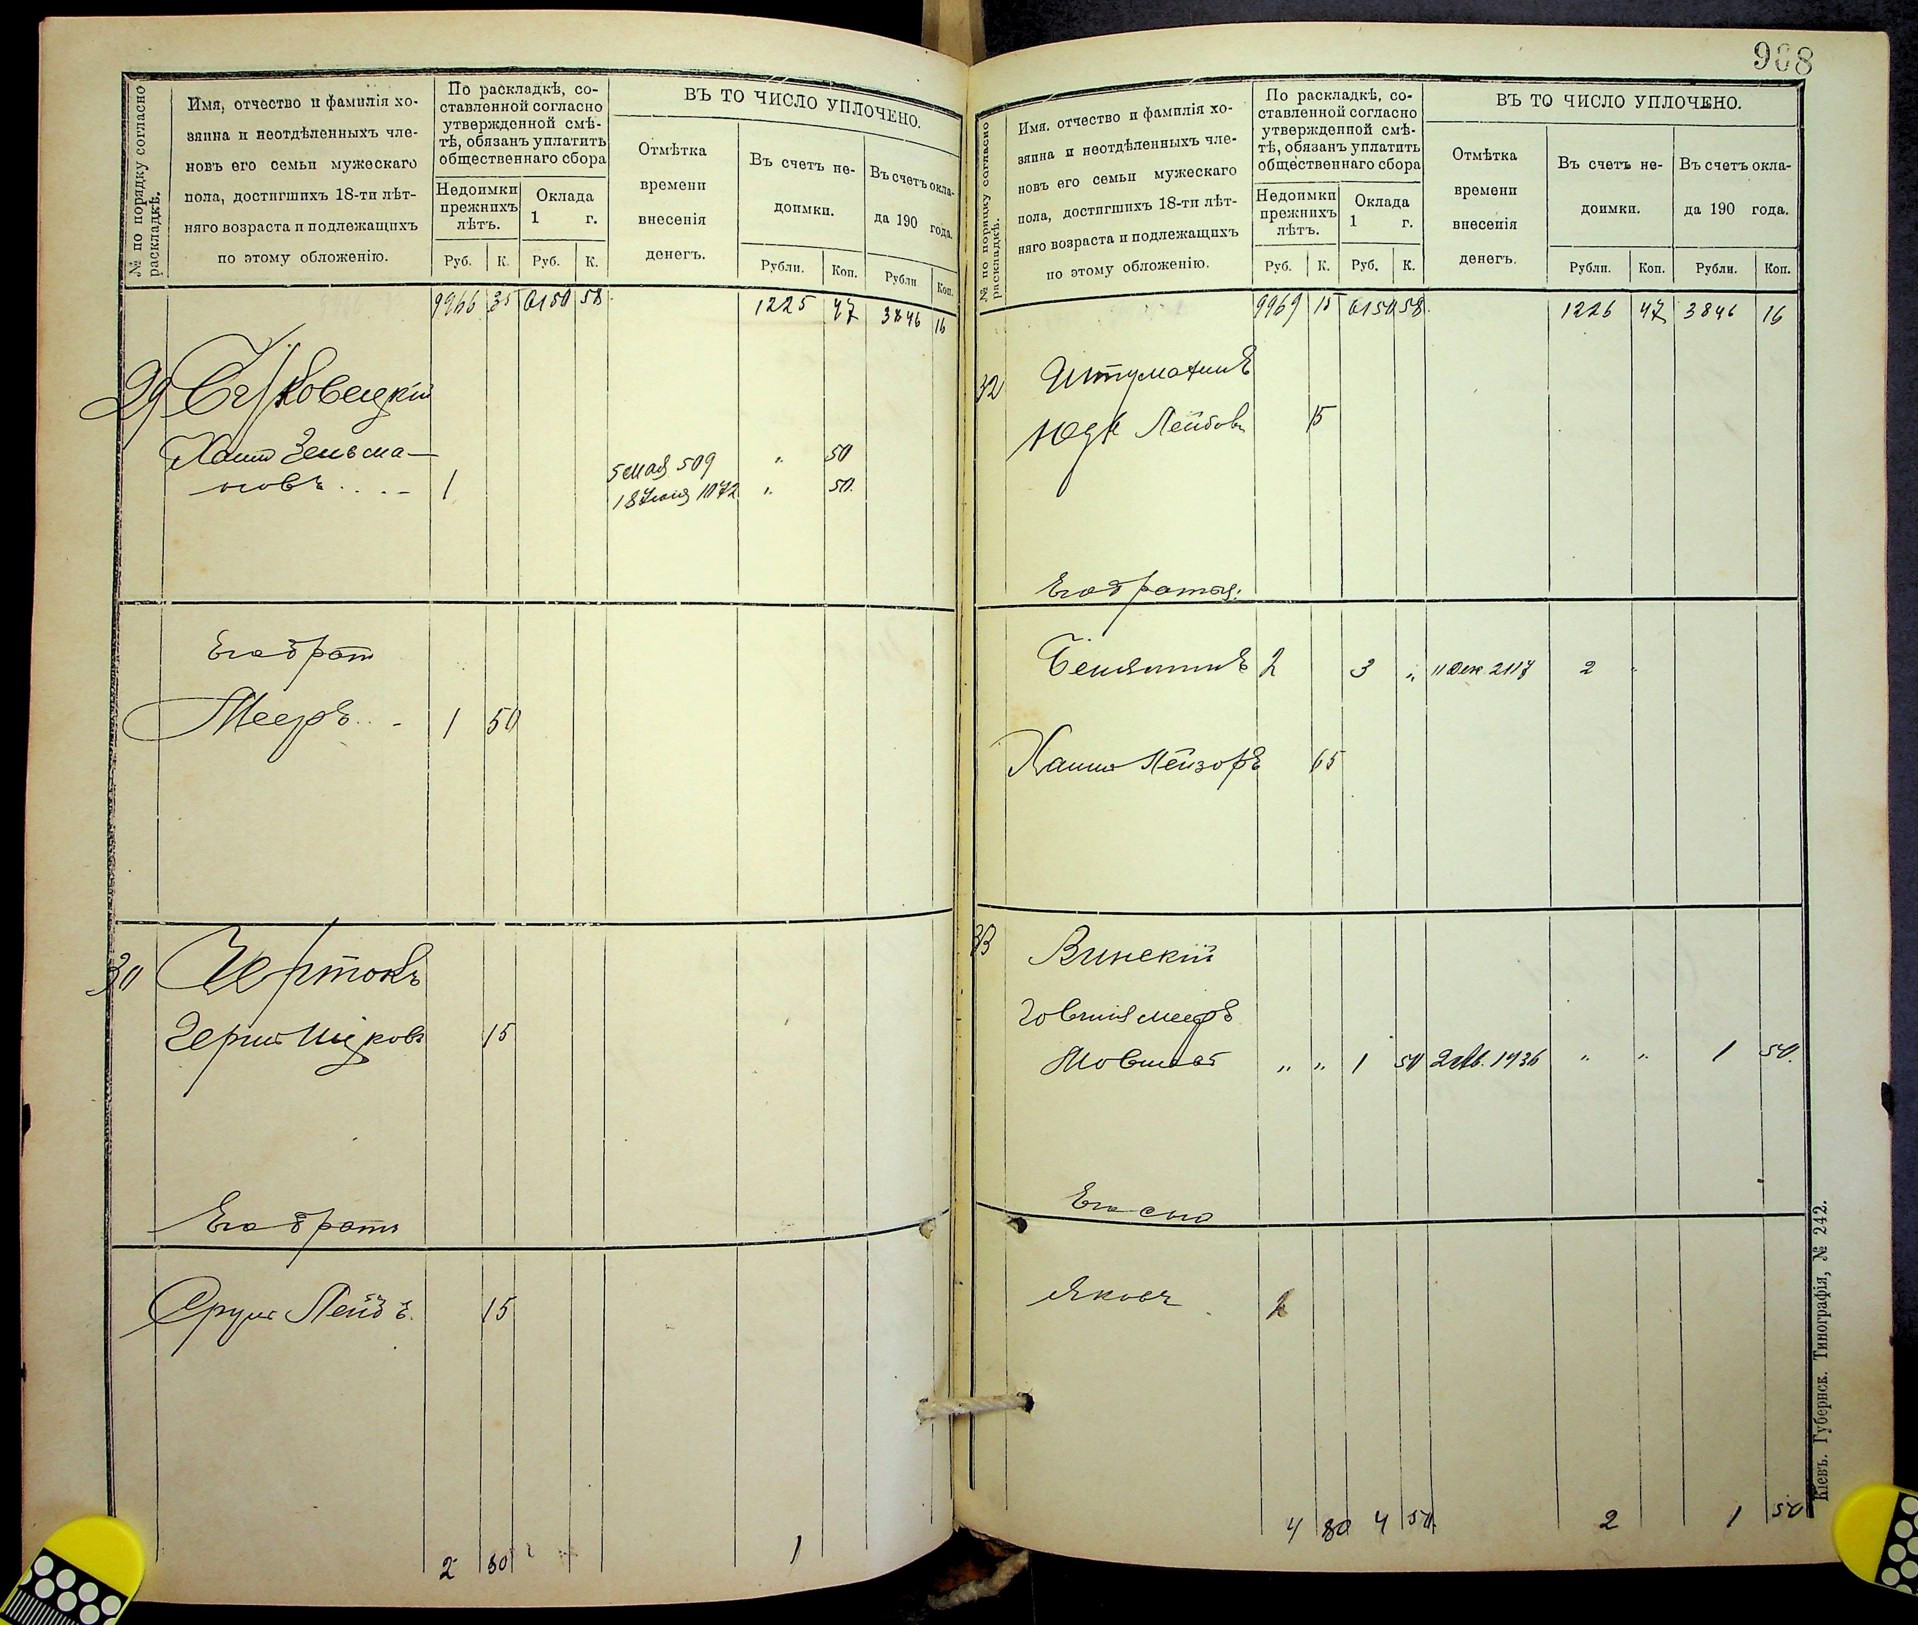 908
№ по порядку согласно раскладкѣ.
Имя, отчество и фамилія хо-
зяина и неотдѣленныхъ чле-
новъ его семьи мужескаго
пола, достигшихъ 18-ти лѣт-
няго возраста и подлежащихъ
по этому обложенію.
По раскладкѣ, со-
ставленной согласно
утвержденной смѣ-
тѣ, обязанъ уплатить
общественнаго сбора
Недоимки
прежнихъ
лѣтъ.
Оклада
1 г.
Руб. К. Руб. К.
ВЪ ТО ЧИСЛО УПЛОЧЕНО.
Отмѣтка
времени
внесенія
денегъ.
Въ счетъ не-
доимки.
Въ счетъ окла-
да 190 года.
Рубли. Коп. Рубли Коп.
9966 35 6150 58 1225 47 3846 16
29
Хаимъ Зельма-
новъ 1
5 Мая 509 " 50
18 Іюня 1072 " 50.
Его братъ
Мееръ 1 50
30 Чертокъ
15
Его братъ
15
2 80 1
№ по порядку согласно раскладкѣ.
Имя, отчество и фамилія хо-
зяина и неотдѣленныхъ чле-
новъ его семьи мужескаго
пола, достигшихъ 18-ти лѣт-
няго возраста и подлежащихъ
по этому обложенію.
По раскладкѣ, со-
ставленной согласно
утвержденной смѣ-
тѣ, обязанъ уплатить
общественнаго сбора
Недоимки
прежнихъ
лѣтъ.
Оклада
1 г.
Руб. К. Руб. К.
ВЪ ТО ЧИСЛО УПЛОЧЕНО.
Отмѣтка
времени
внесенія
денегъ.
Въ счетъ не-
доимки.
Въ счетъ окла-
да 190 года.
Рубли. Коп. Рубли. Коп.
9969 15 6150 58 1226 47 3846 16
32
Лейбовъ 15
Его братья:
Беньяминъ 2 3 " 11 Дек. 2117 2 "
Хаимъ Лейзоръ 65
33 Винскій
Мееръ
Мовшовъ " " 1 50 2 Ав. 1936 " " 1 50.
Его сынъ
Яковъ 2
4 80 4 50 2 1 50
Кіевъ. Губернск. Типографія, № 242.